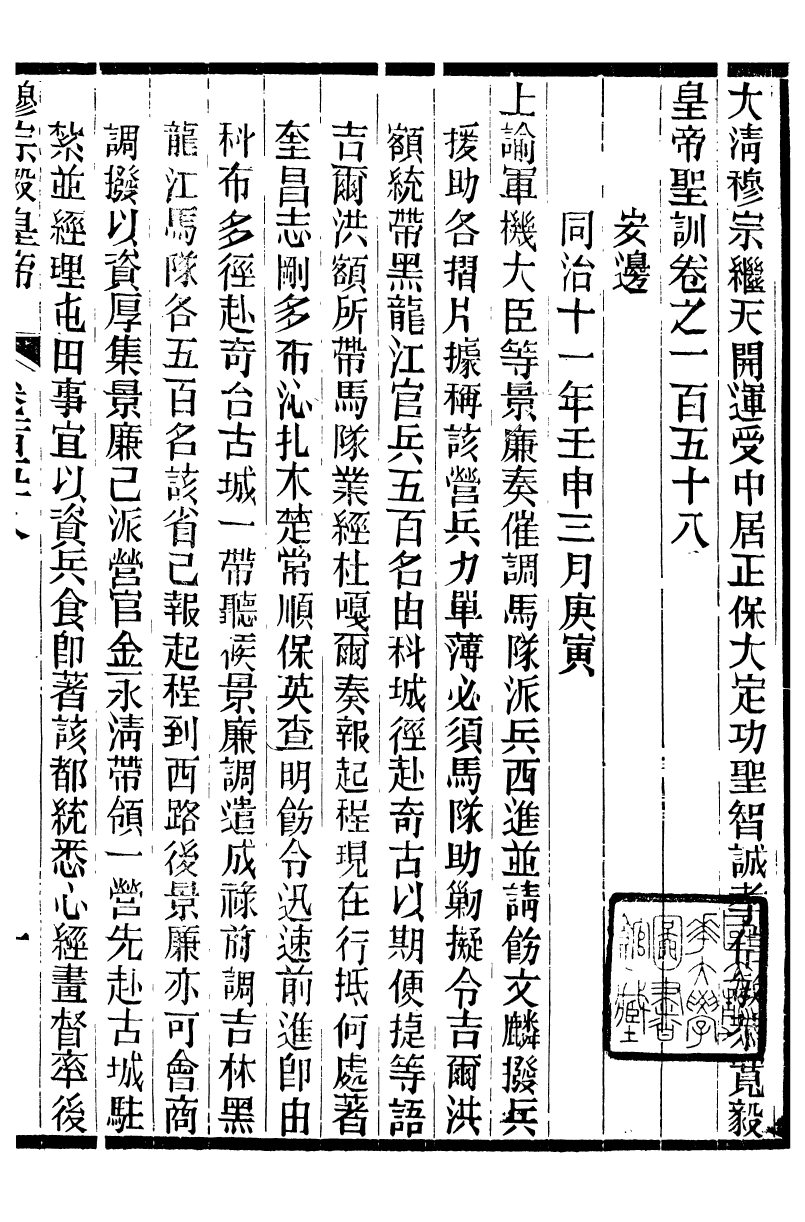 大清穆宗繼天開運受中居正保大定功聖智誠孝信敏恭寬毅
皇帝聖訓卷之一百五十八
安邊
同治十一年壬申三月庚寅
上諭軍機大臣等景廉奏催調馬隊派兵西進並請飭文麟撥兵
援助各摺片據稱該營兵力單薄必須馬隊助勦擬令吉爾洪
額統帶黑龍江官兵五百名由科城徑赴奇古以期便捷等語
吉爾洪額所帶馬隊業經杜嘎爾奏報起程現在行抵何處著
奎昌志剛多布沁扎木楚常順保英查明飭令迅速前進卽由
科布多徑赴奇台古城一帶聽候景廉調遣成祿前調吉林黑
龍江馬隊各五百名該省已報起程到西路後景廉亦可會商
調撥以資厚集景廉已派營官金永清帶領一營先赴古城駐
紮並經理屯田事宜以資兵食卽著該都統悉心經畫督率後
穆宗毅皇帝 卷一百五十八 一
國立清華大學圖書館藏